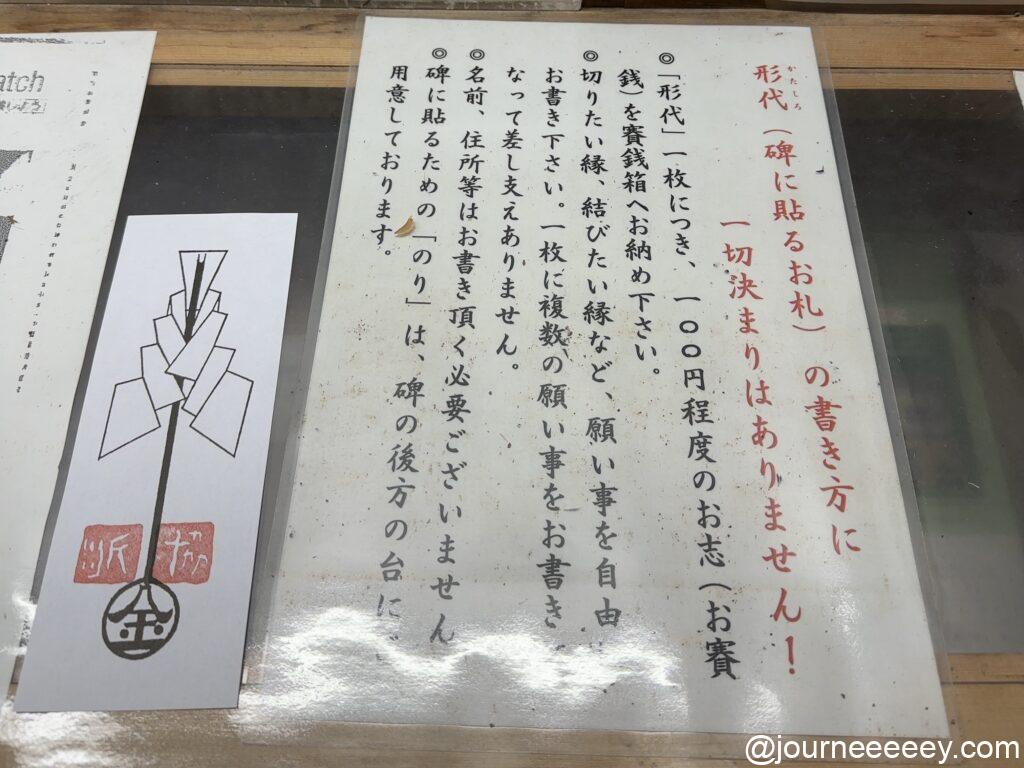 かたしろ
形代（碑に貼るお札）の書き方に
一切決まりはありません！
◎「形代」一枚につき、一〇〇円程度のお志（お賽
銭）を賽銭箱へお納め下さい。
◎切りたい縁、結びたい縁など、願い事を自由
お書き下さい。一枚に複数の願い事をお書き
なって差し支えありません。
◎名前、住所等はお書き頂く必要ございません
◎碑に貼るための「のり」は、碑の後方の台に
用意しております。
金
atch
@journeeeeey.com